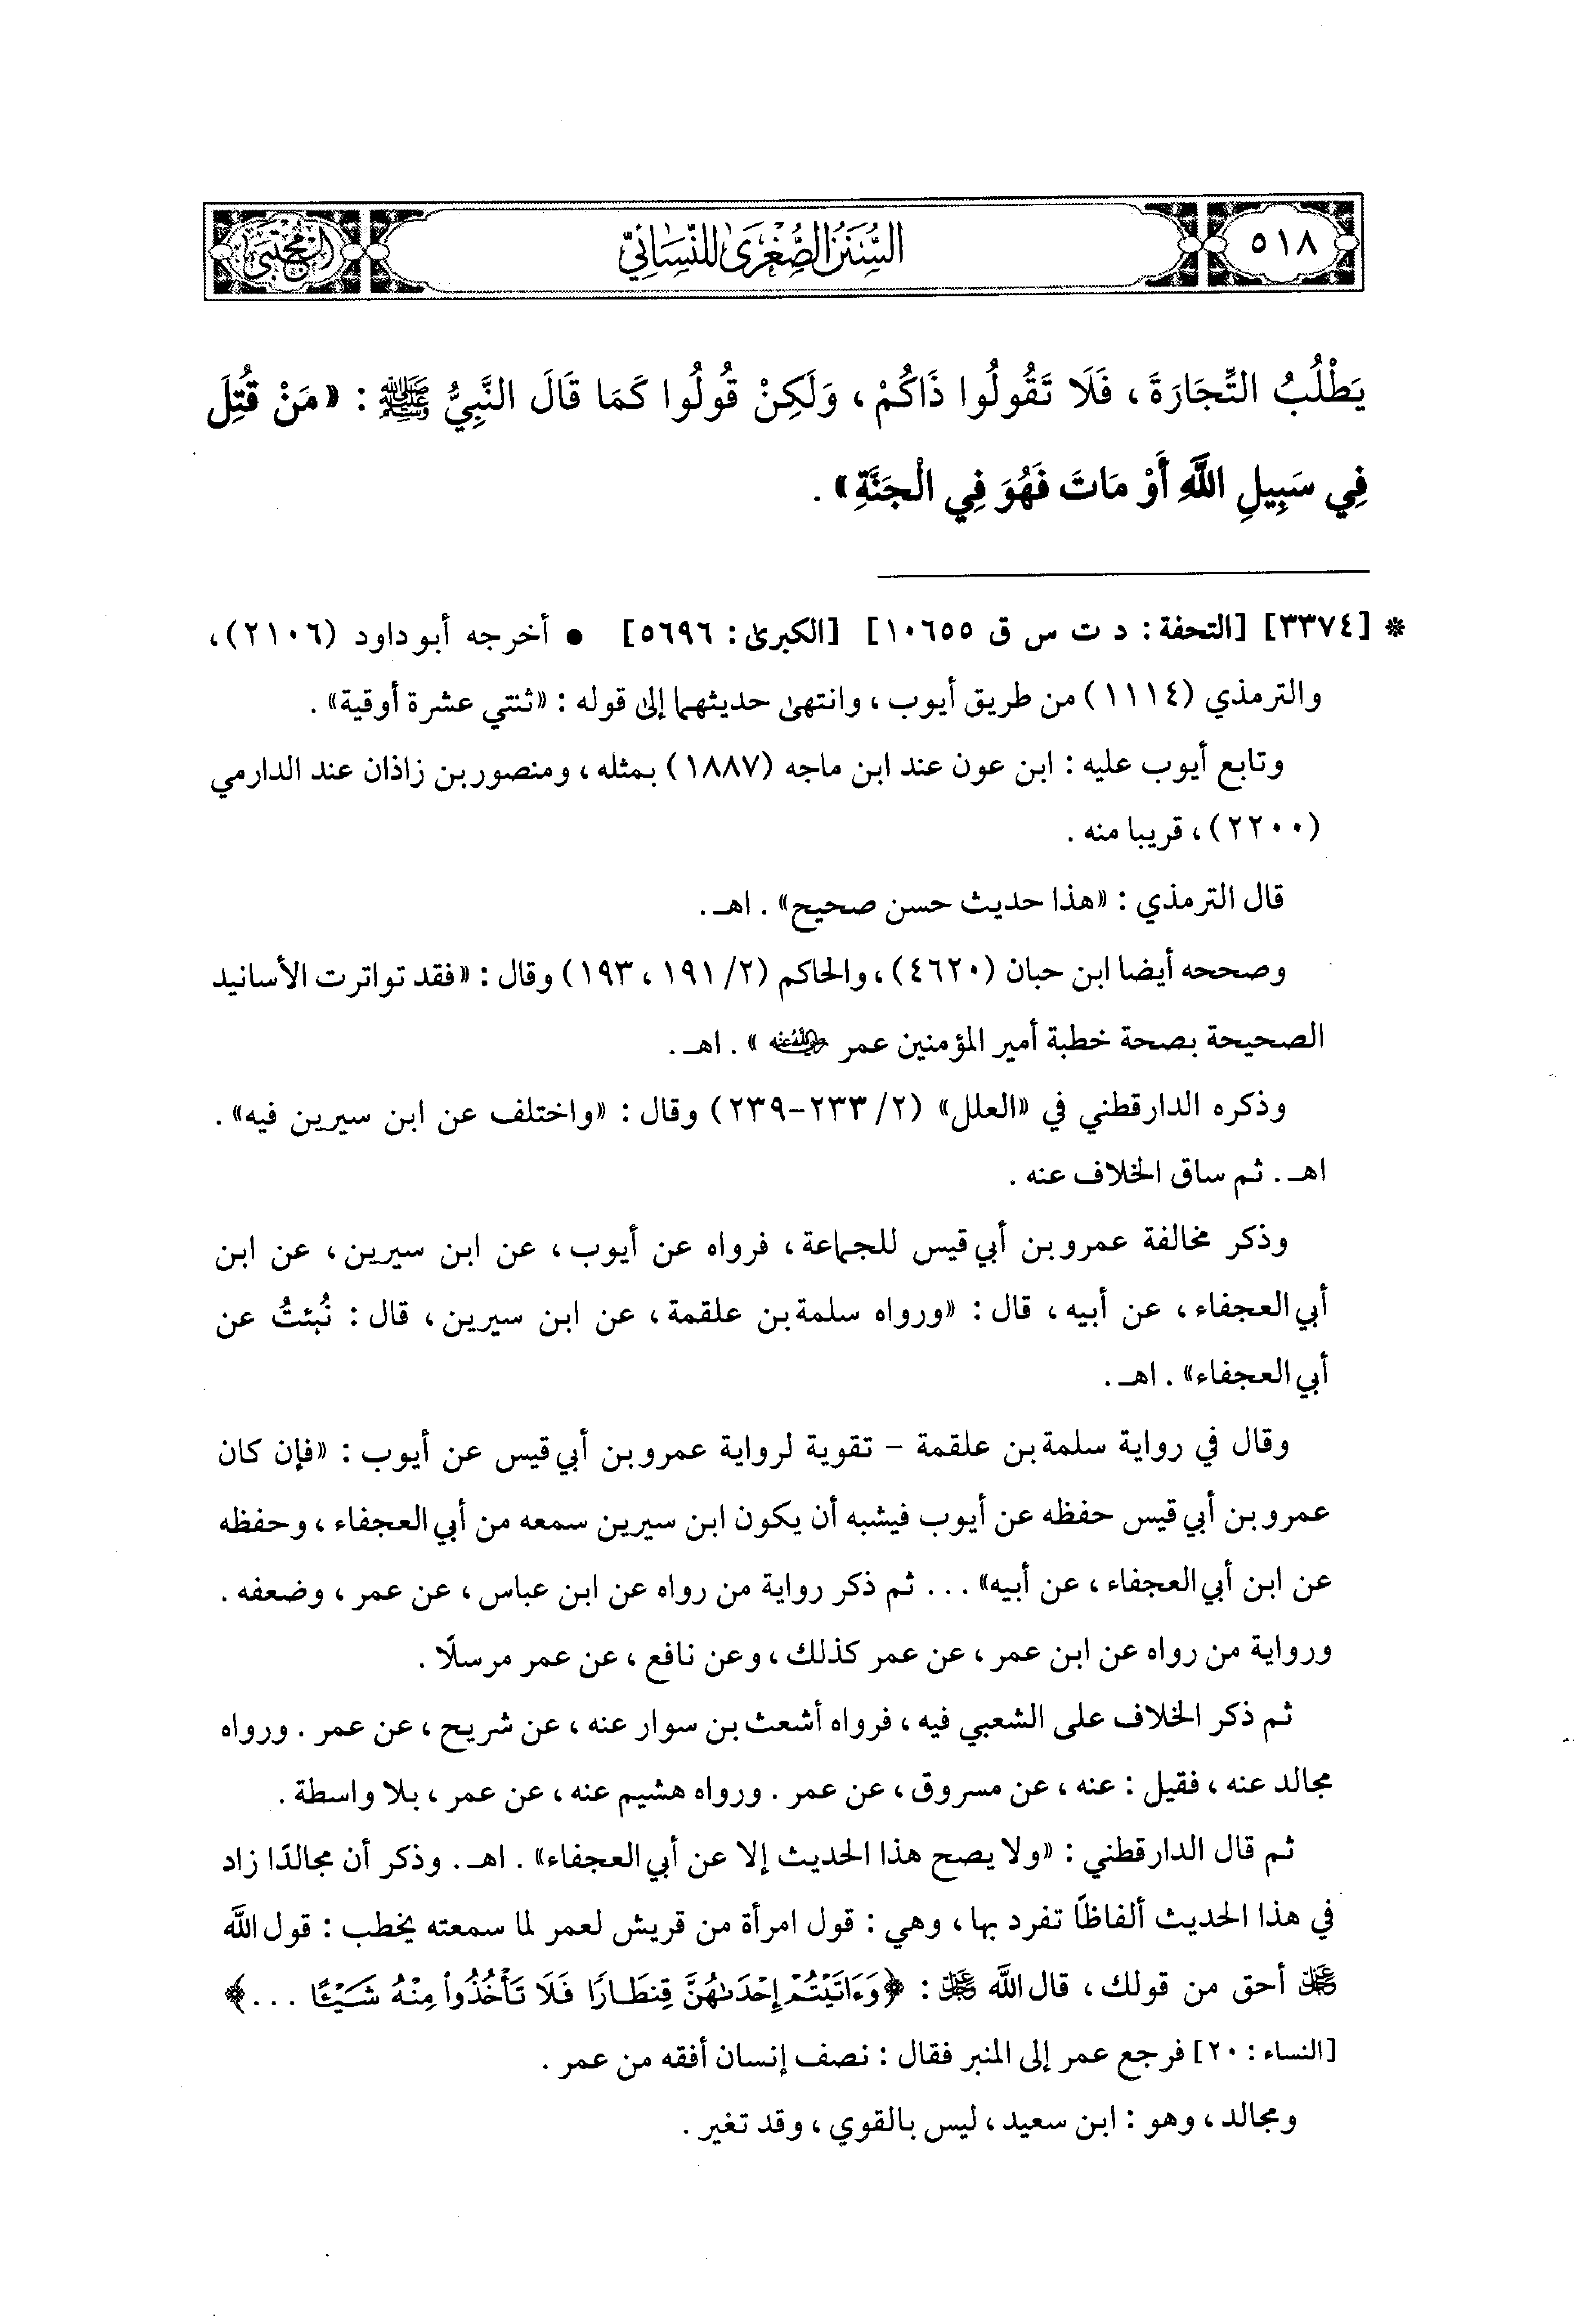 ٥١٨
السُّنَنُ الصُّغْرَىٰ لِلنَّسَائِيِّ
المجتبى
يَطْلُبُ التِّجَارَةَ ، فَلَا تَقُولُوا ذَاكُمْ ، وَلَكِنْ قُولُوا كَمَا قَالَ النَّبِيُّ ﷺ : «مَنْ قُتِلَ
فِي سَبِيلِ اللَّهِ أَوْ مَاتَ فَهُوَ فِي الْجَنَّةِ» .
* [٣٣٧٤] [التحفة : د ت س ق ١٠٦٥٥] [الكبرىٰ : ٥٦٩٦] • أخرجه أبو داود (٢١٠٦) ،
والترمذي (١١١٤) من طريق أيوب ، وانتهىٰ حديثهما إلىٰ قوله : «ثنتي عشرة أوقية» .
وتابع أيوب عليه : ابن عون عند ابن ماجه (١٨٨٧) بمثله ، ومنصور بن زاذان عند الدارمي
(٢٢٠٠) ، قريبا منه .
قال الترمذي : «هذا حديث حسن صحيح» . اهـ .
وصححه أيضا ابن حبان (٤٦٢٠) ، والحاكم (٢/ ١٩١ ، ١٩٣) وقال : «فقد تواترت الأسانيد
الصحيحة بصحة خطبة أمير المؤمنين عمر رضي الله عنه » . اهـ .
وذكره الدارقطني في «العلل» (٢/ ٢٣٣-٢٣٩) وقال : «واختلف عن ابن سيرين فيه» .
اهـ . ثم ساق الخلاف عنه .
وذكر مخالفة عمرو بن أبي قيس للجماعة ، فرواه عن أيوب ، عن ابن سيرين ، عن ابن
أبي العجفاء ، عن أبيه ، قال : «ورواه سلمة بن علقمة ، عن ابن سيرين ، قال : نُبئتُ عن
أبي العجفاء» . اهـ .
وقال في رواية سلمة بن علقمة - تقوية لرواية عمرو بن أبي قيس عن أيوب : «فإن كان
عمرو بن أبي قيس حفظه عن أيوب فيشبه أن يكون ابن سيرين سمعه من أبي العجفاء ، وحفظه
عن ابن أبي العجفاء ، عن أبيه» ... ثم ذكر رواية من رواه عن ابن عباس ، عن عمر ، وضعفه .
ورواية من رواه عن ابن عمر ، عن عمر كذلك ، وعن نافع ، عن عمر مرسلًا .
ثم ذكر الخلاف على الشعبي فيه ، فرواه أشعث بن سوار عنه ، عن شريح ، عن عمر . ورواه
مجالد عنه ، فقيل : عنه ، عن مسروق ، عن عمر . ورواه هشيم عنه ، عن عمر ، بلا واسطة .
ثم قال الدارقطني : «ولا يصح هذا الحديث إلا عن أبي العجفاء» . اهـ . وذكر أن مجالدًا زاد
في هذا الحديث ألفاظًا تفرد بها ، وهي : قول امرأة من قريش لعمر لما سمعته يخطب : قول اللَّه
عز وجل أحق من قولك ، قال اللَّه عز وجل : ﴿وَءَاتَيْتُمْ إِحْدَىٰهُنَّ قِنطَارًا فَلَا تَأْخُذُوا۟ مِنْهُ شَيْـًٔا ...﴾
[النساء : ٢٠] فرجع عمر إلى المنبر فقال : نصف إنسان أفقه من عمر .
ومجالد ، وهو : ابن سعيد ، ليس بالقوي ، وقد تغير .